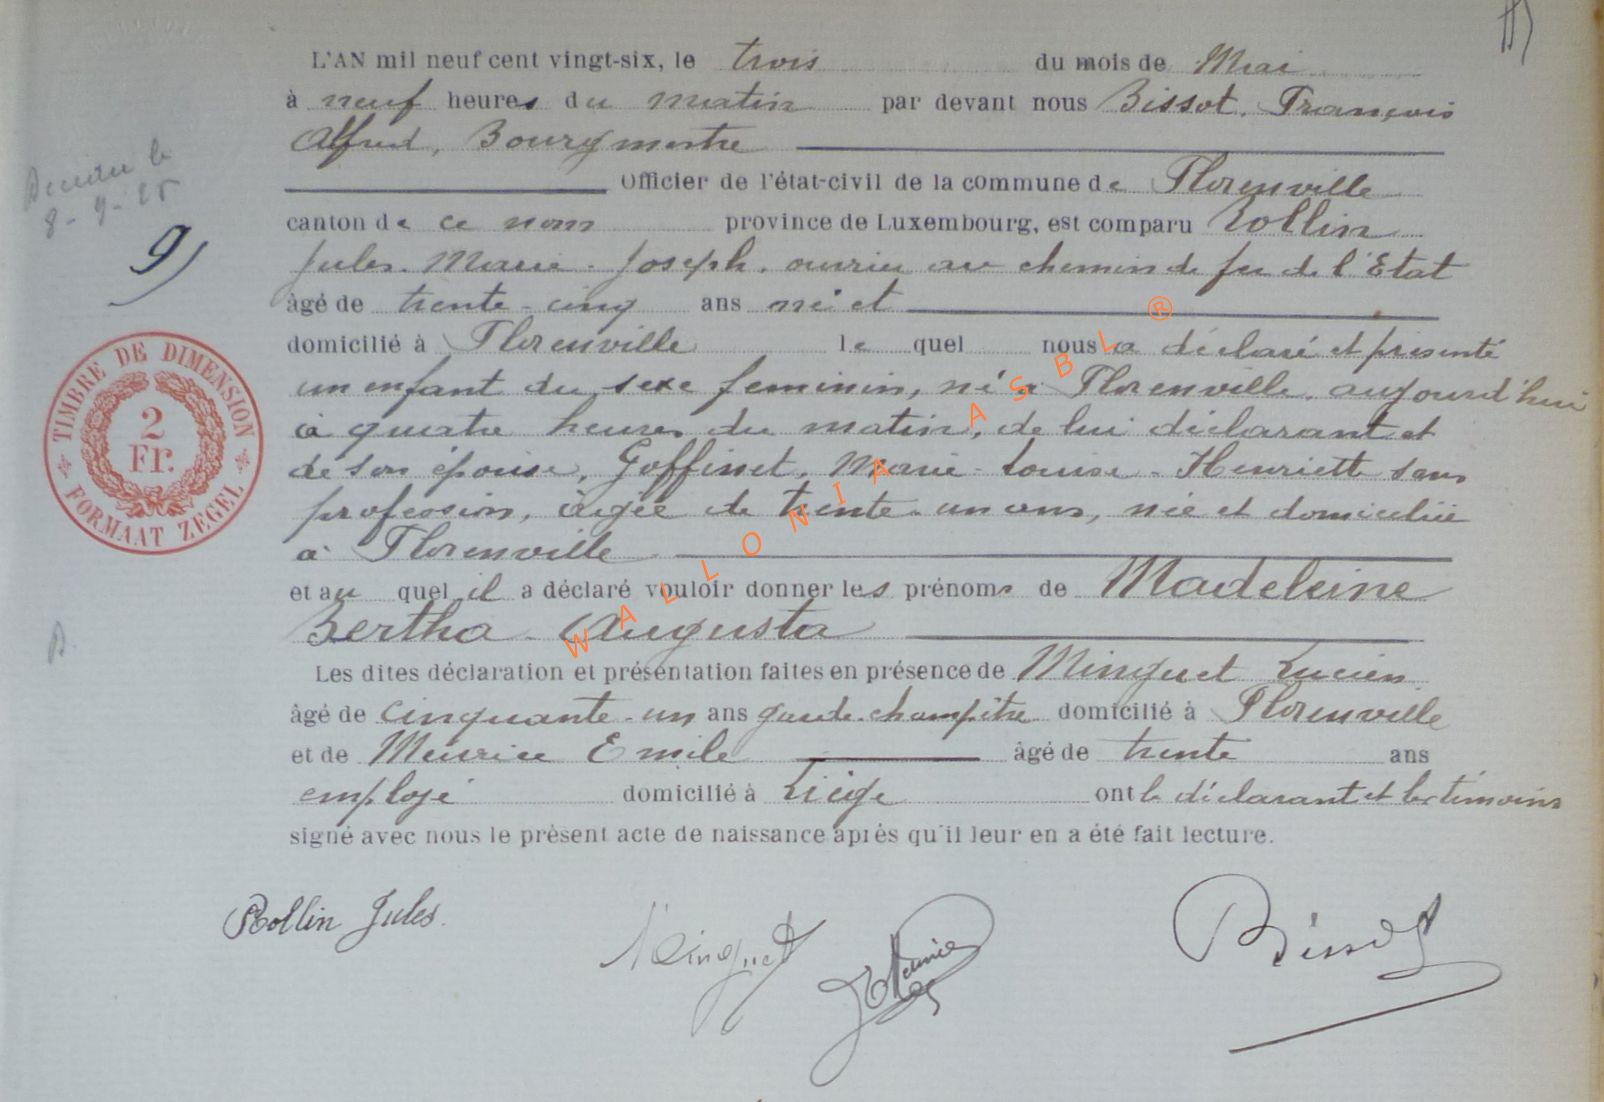 L'AN mil neuf cent vingt-six, le trois du mois de Mai
à neuf heures du matin par devant nous Bissot, François
Alfred, Bourgmestre
Officier de l'état-civil de la commune de Florenville
canton de ce nom province de Luxembourg, est comparu Rollin
Jules-Marie-Joseph, ouvrier au chemin de fer de l'Etat
âgé de trente-cinq ans né et
domicilié à Florenville le quel nous a déclaré et présenté
un enfant du sexe feminin, né à Florenville, aujourd'hui
à quatre heures du matin, de lui déclarant et
de son épouse, Goffinet, Marie-Louise-Henriette sans
profession, âgée de trente-un ans, née et domiciliée
à Florenville
et au quel il a déclaré vouloir donner les prénoms de Madeleine
Bertha Augusta
Les dites déclaration et présentation faites en présence de Minguet Lucien
âgé de cinquante-un ans garde-champêtre domicilié à Florenville
et de Emile âgé de trente ans
employé domicilié à Liège ont le déclarant et les témoins
signé avec nous le présent acte de naissance après qu'il leur en a été fait lecture.
Rollin Jules.
Minguet
Bissot
9)
TIMBRE DE DIMENSION
2
Fr.
FORMAAT ZEGEL
WALLONIA ASBL ®